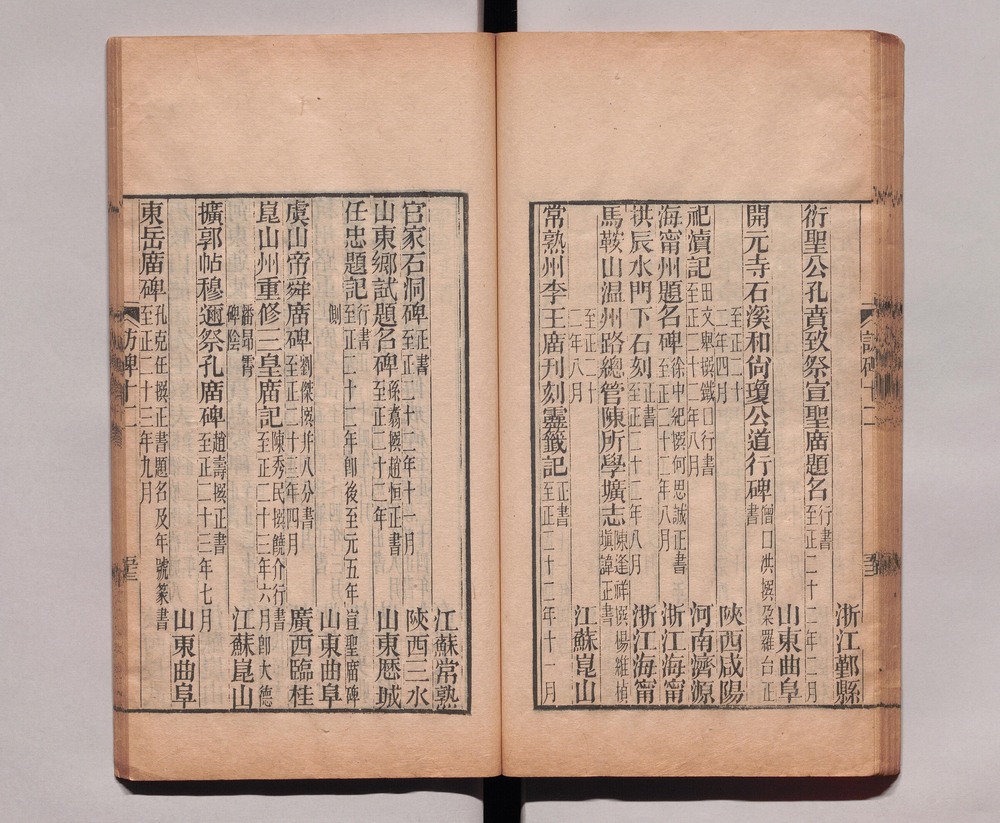 浙江鄞縣
衍聖公孔賁致祭宣聖廟題名 行書 至正二十二年二月
山東曲阜
開元寺石溪和尚瓊公道行碑 僧口洪撰 朶羅台正書 至正二十二年四月
陝西咸陽
祀瀆記 田文興撰 鐵口行書 至正二十二年八月
河南濟源
海甯州題名碑 徐中紀撰 何思誠正書 至正二十二年八月
浙江海甯
祺辰水門下石刻 正書 至正二十二年八月
浙江海甯
馬鞍山温州路總管陳所學壙志 陳逢祥撰 楊維楨填諱 正書 至正二十二年八月
江蘇崑山
常熟州李王廟刋刻靈籤記 正書 至正二十二年十一月
江蘇常熟
官家石洞碑 正書 至正二十二年十一月
陝西三水
山東鄉試題名碑 孫翥撰 趙恒正書 至正二十二年
山東歷城
任忠題記 行書 至正二十二年卽後至元五年宣聖廟碑側
山東曲阜
虞山帝舜廟碑 劉傑撰并八分書 至正二十三年四月
廣西臨桂
崑山州重修三皇廟記 陳秀民撰 饒介行書 至正二十三年六月卽大德 潘昂霄碑陰
江蘇崑山
擴郭帖穆邇祭孔廟碑 趙壽撰正書 至正二十三年七月
山東曲阜
東岳廟碑 孔克任撰正書 題名及年號篆書 至正二十三年九月
訪碑十二